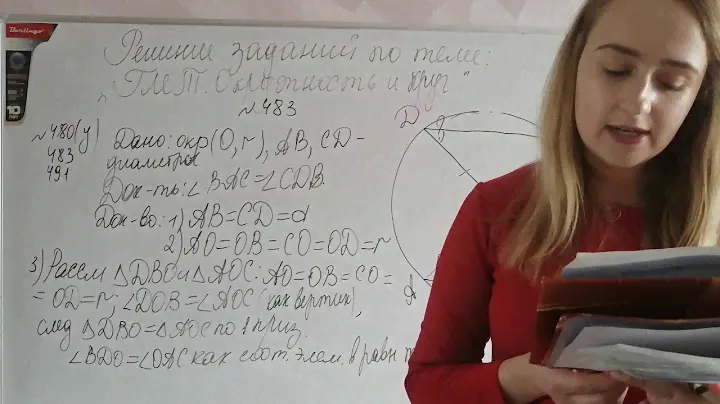 Berlingo
Решение заданий по теме:
„ГМТ. Окружность и круг“
№483
№480(у)
483
491
Дано: окр(O, r), AB, CD-
диаметры
Док-ть: ∠BAC=∠CDB.
Док-во: 1) AB=CD=d
2) AO=OB=CO=OD=r
3) Рассм △DBO и △AOC: AO=OB=CO=
=OD=r; ∠DOB=∠AOC (как вертик),
след △DBO=△AOC по 1 приз.
∠BDO=∠OAC как соот. элем. в равн
D
A